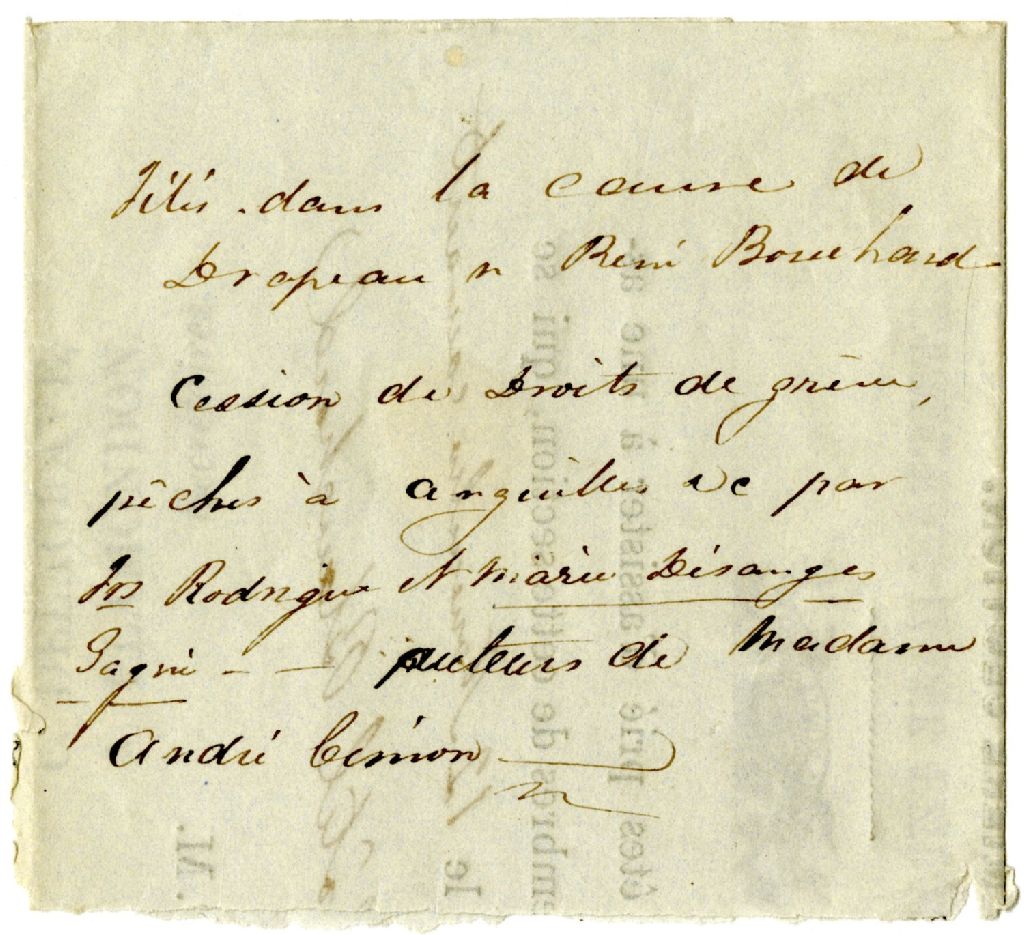 Filés dans la cause de
Drapeau vs René Bouchard
Cession de Droits de grève,
pêches à anguilles &c par
Jos Rodrigue & Marie Désanges
Gagné - - auteurs de Madame
André Cimon